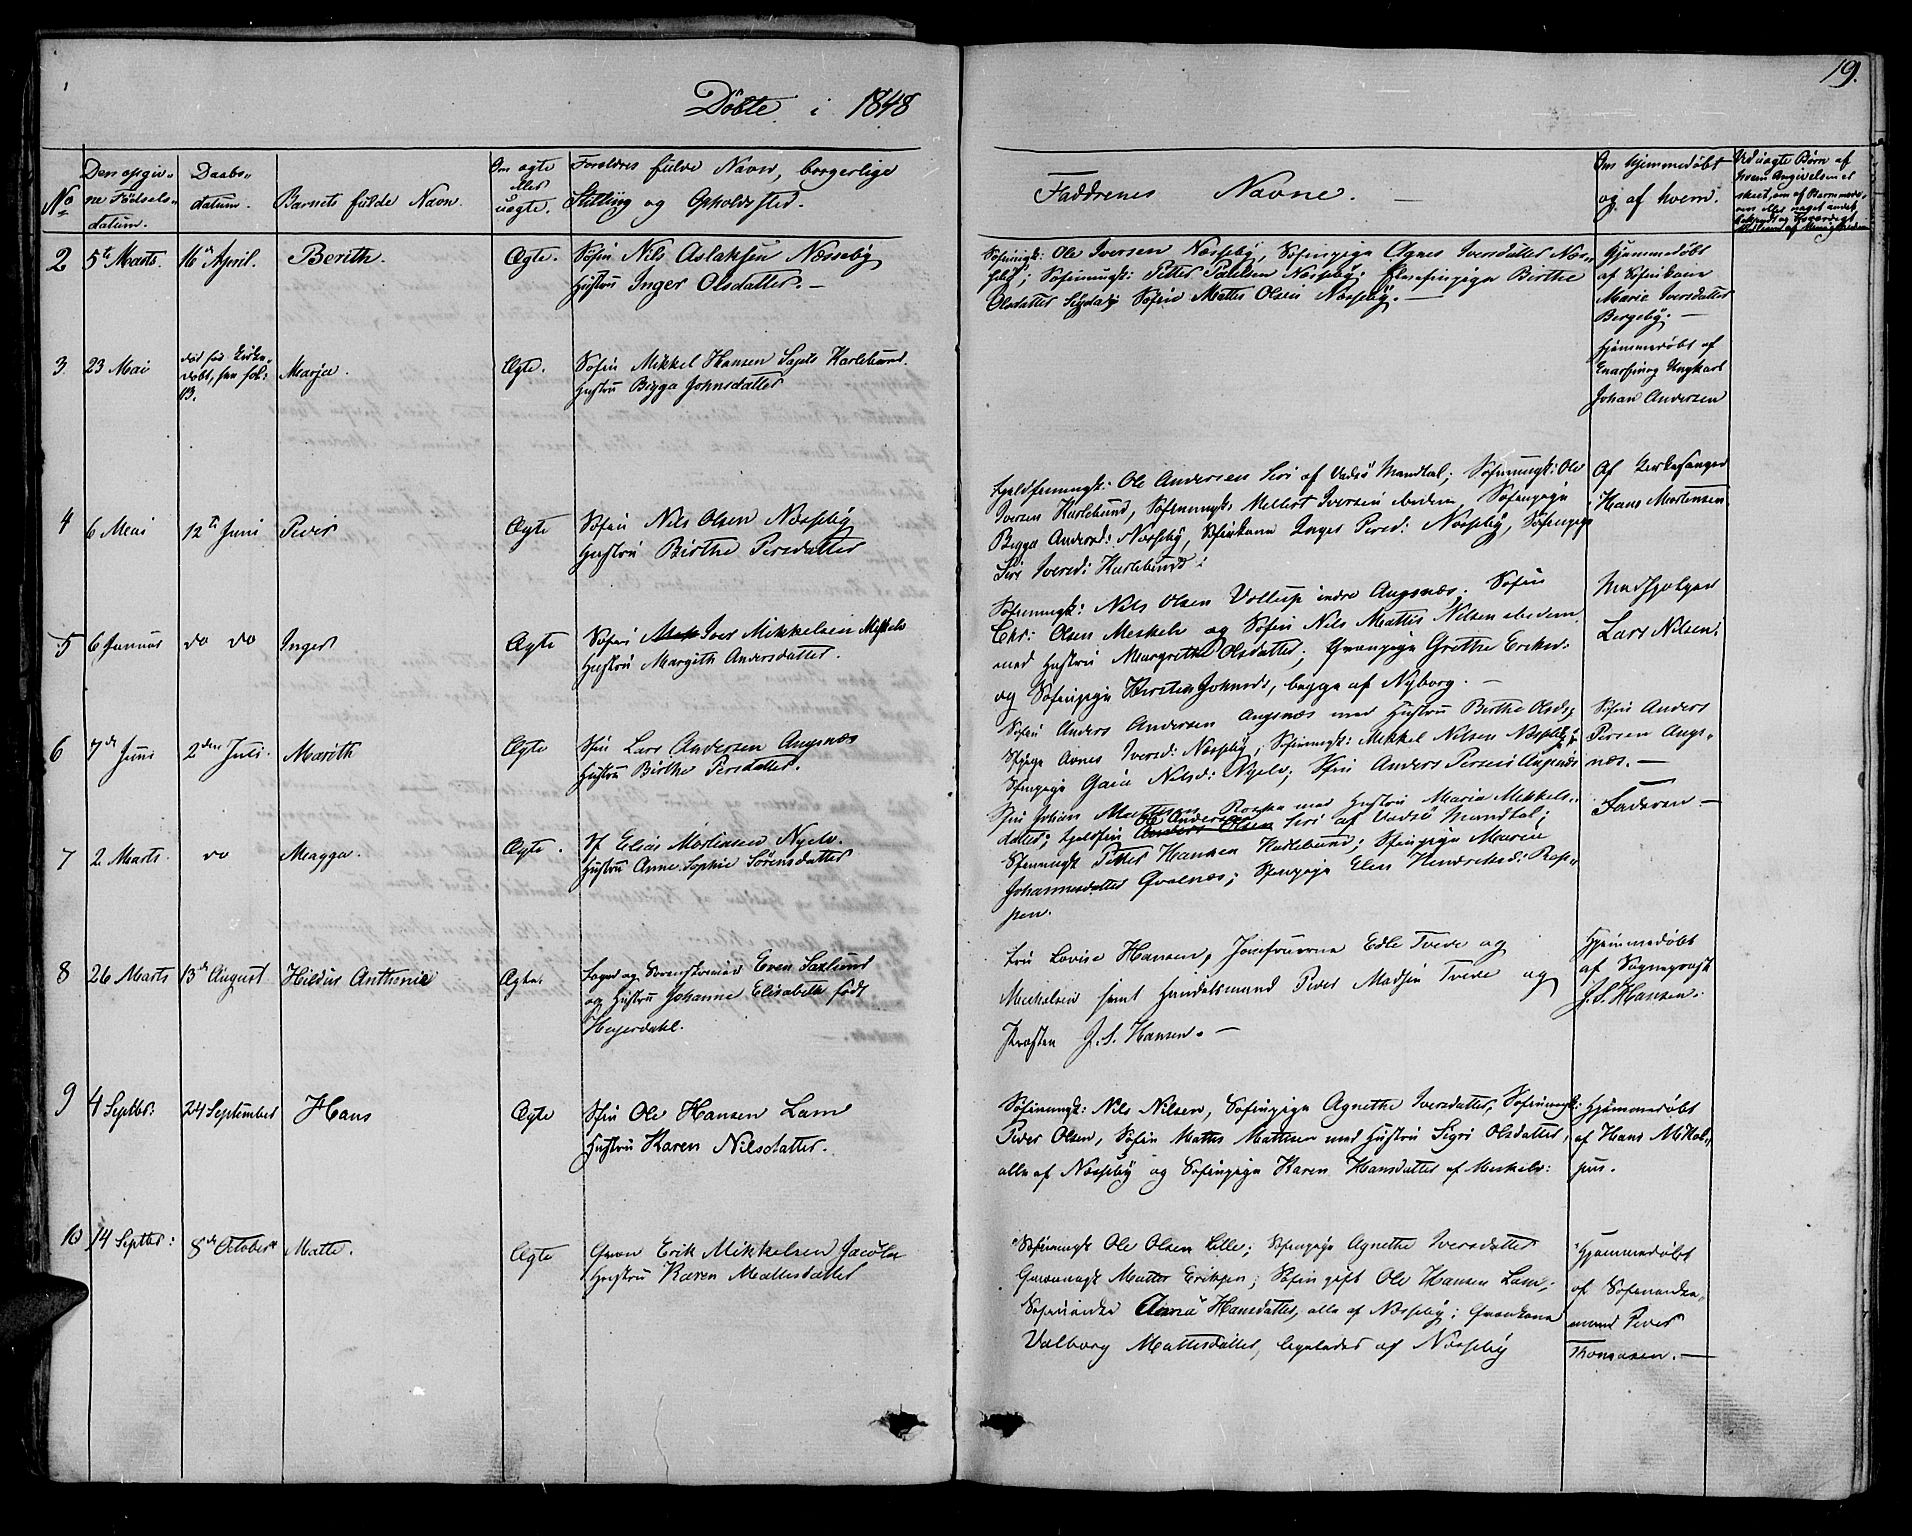 19.
Døbte i 1848
No
Den opgiv-
ne Fødsels-
datum.
Daabs-
datum.
Barnets fulde Navn.
Om ægte
eller
uægte.
Forældres fulde Navn, borgerlige
Stilling og Opholdssted.
Faddrenes Navne.
Om hjemmedøbt
og af hvem.
Ved uægte Børn af
hvem Angivelsen er
2 5te Marts. 16de April. Berith. Ægte. Søfin Nils Aslaksen Næsseby
Hustru Inger Olsdatter.
Søfinungk: Ole Iversen Næsseby, Søfinpige Agnes Iversdatter Næs-
seby; Søfinungk: Petter Paulsen Næsseby; Birthe
Olsdatter Søfin Mattis Olsen Næsseby.
Hjemmedøbt
af Søfinkone
Marie Iversdatter
Bergeby.
3 23 Mai Marja. Ægte. Søfin Mikkel Hansen Karlebund.
Hustru Bigga Johnsdatter
Hjemmedøbt af
Ungkarl
Johan Andersen
4 6 Mai 12te Juni Peder Ægte Søfin Nils Olsen Næsseby
Hustru Birthe Persdatter
Ole Andersen Siri af Vadsø Mandtal; Søfinungk: Ole
Iversen Karlebund, Søfinungk: Iversen ibidem, Søfinpige
Bigga Andersd: Næsseby, Søfinkone Inger Persd: Næsseby, Søfinpige
Siri Iversd: Karlebund.
Af Kirkesanger
Hans Mortensen
5 6 Januar do do Inger Ægte Søfin Iver Mikkelsen Meskelv
Hustru Margith Andersdatter.
Søfinungk: Nils Olsen indre Angsnæs. Søfin
Chr: Olsen Meskelv og Søfin Nils Mattis Nilsen ibidem
med Hustru Margrethe Olsdatter; Qvænpige Grethe Eriksd:
og Søfinpige Kirsten Johnsd:, begge af Nyborg.
Medhjelper
Lars Nilsen.
6 7de Juni 2den Juli. Marith Ægte Sfin Lars Andersen Angsnæs
Hustru Birthe Persdatter.
Søfin Anders Andersen Angsnæs med Hustru Birthe Olsd;
Sfpige Agnes Iversd: Næsseby, Søfinungk: Mikkel Nilsen Næsseby,
Sfinpige Gaia Nilsd: Nyelv; Sfin Anders Persen Angsnæs
Søfin Anders
Persen Angs-
næs.
7 2 Marts. do Magga. Ægte. Sf Elias Mortensen Nyelv.
Hustru Anne Sophie Sørensdatter
Sfin Johan Mathisen med Hustru Maria Mikkels-
datter; Fjeldfin Ole Andersen Siri af Vadsø Mandtal;
Sfinungk Petter Hansen Karlebund; Sfinpige Maria
Johannesdatter Qvalnæs; Sfinpige Elen Henriksd: Rep-
pen.
Faderen
8 26 Marts 13de August Hildur Anthonie Ægte. Foged og Sorenskriver Even Saxlund
og Hustru Johanne Elisabeth født
Heyerdahl.
Fru Lovise Hansen, Jomfruerne Edle Tvede og
Mickelsen samt Handelsmand Peder Madsen Tvede og
Provsten J. S. Hansen.
Hjemmedøbt
af Sognepræst
J. S. Hansen.
9 4 Septbr: 24 September Hans Ægte Sfin Ole Hansen Lam
Hustru Karen Nilsdatter.
Søfinungk: Nils Nilsen, Søfinpige Agnethe Iversdatter, Søfinungk:
Peder Olsen, Søfin Mattis Mathisen med Hustru Sigri Olsdatter,
alle af Næsseby og Søfinpige Karen Hansdatter af Meskelv:
Hjemmedøbt
af Hans Mikal-
sen.
10 14 Septbr: 8de October Matte. Ægte Qvæn Erik Mikkelsen
Hustru Karen Mattisdatter
Søfinungk Ole Olsen Lille; Søfinpige Agnethe Iversdatter
Qvænungk Mattis Eriksen; Søfin gift Ole Hansen Lam;
Søfinenke Anna Hansdatter, alle af Næsseby; Qvænkone
Valborg Mattisdatter, ligeledes af Næsseby
Hjemmedøbt
af Søfinenke-
mand Peder
Thomasen.